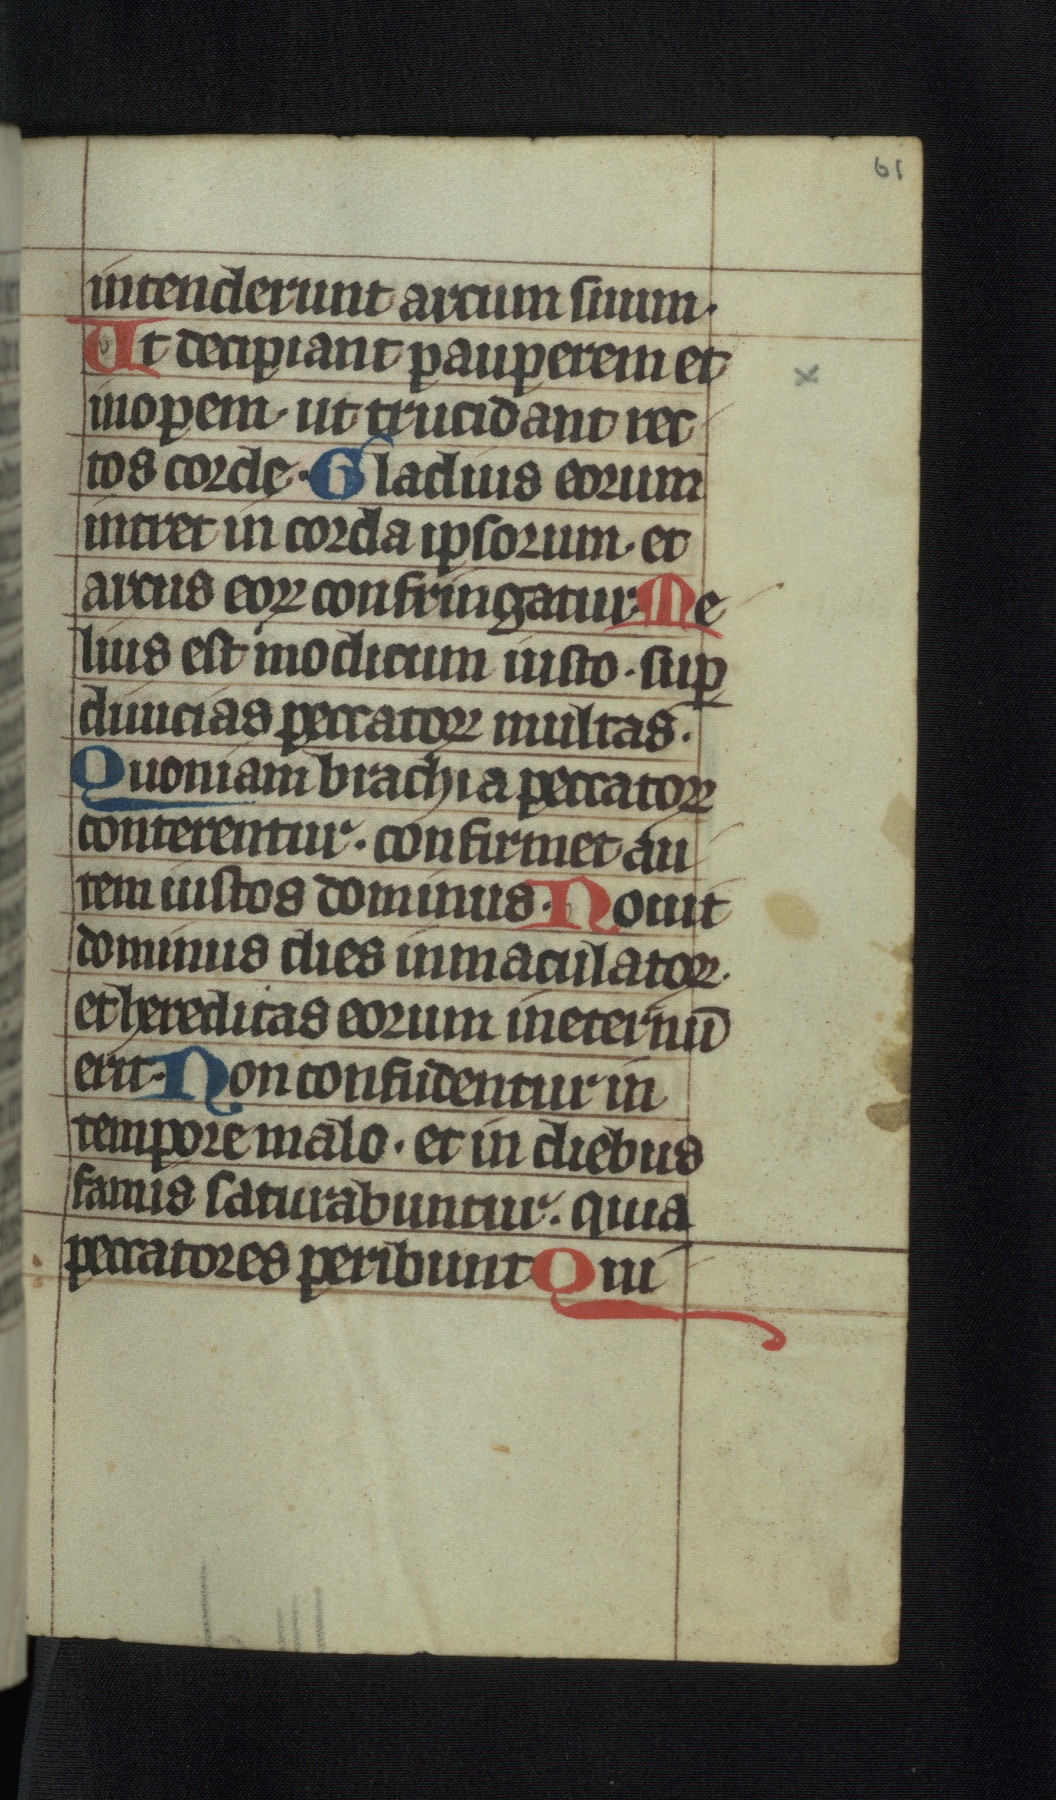 61
intenderunt arcum suum.
Ut decipiant pauperem et
inopem. ut trucidant rec
tos corde. Gladius eorum
intret in corda ipsorum. et
arcus eoꝝ confringatur. Me
lius est modicum iusto. suꝑ
diuicias peccatoꝝ multas.
Quoniam brachia peccatoꝝ
conterentur. confirmet au
tem iustos dominus. Nouit
dominus dies inmaculatoꝝ.
et hereditas eorum in eternū
erit. Non confudentur in
tempore malo. et in diebus
famis saturabuntur. quia
peccatores peribunt Qui